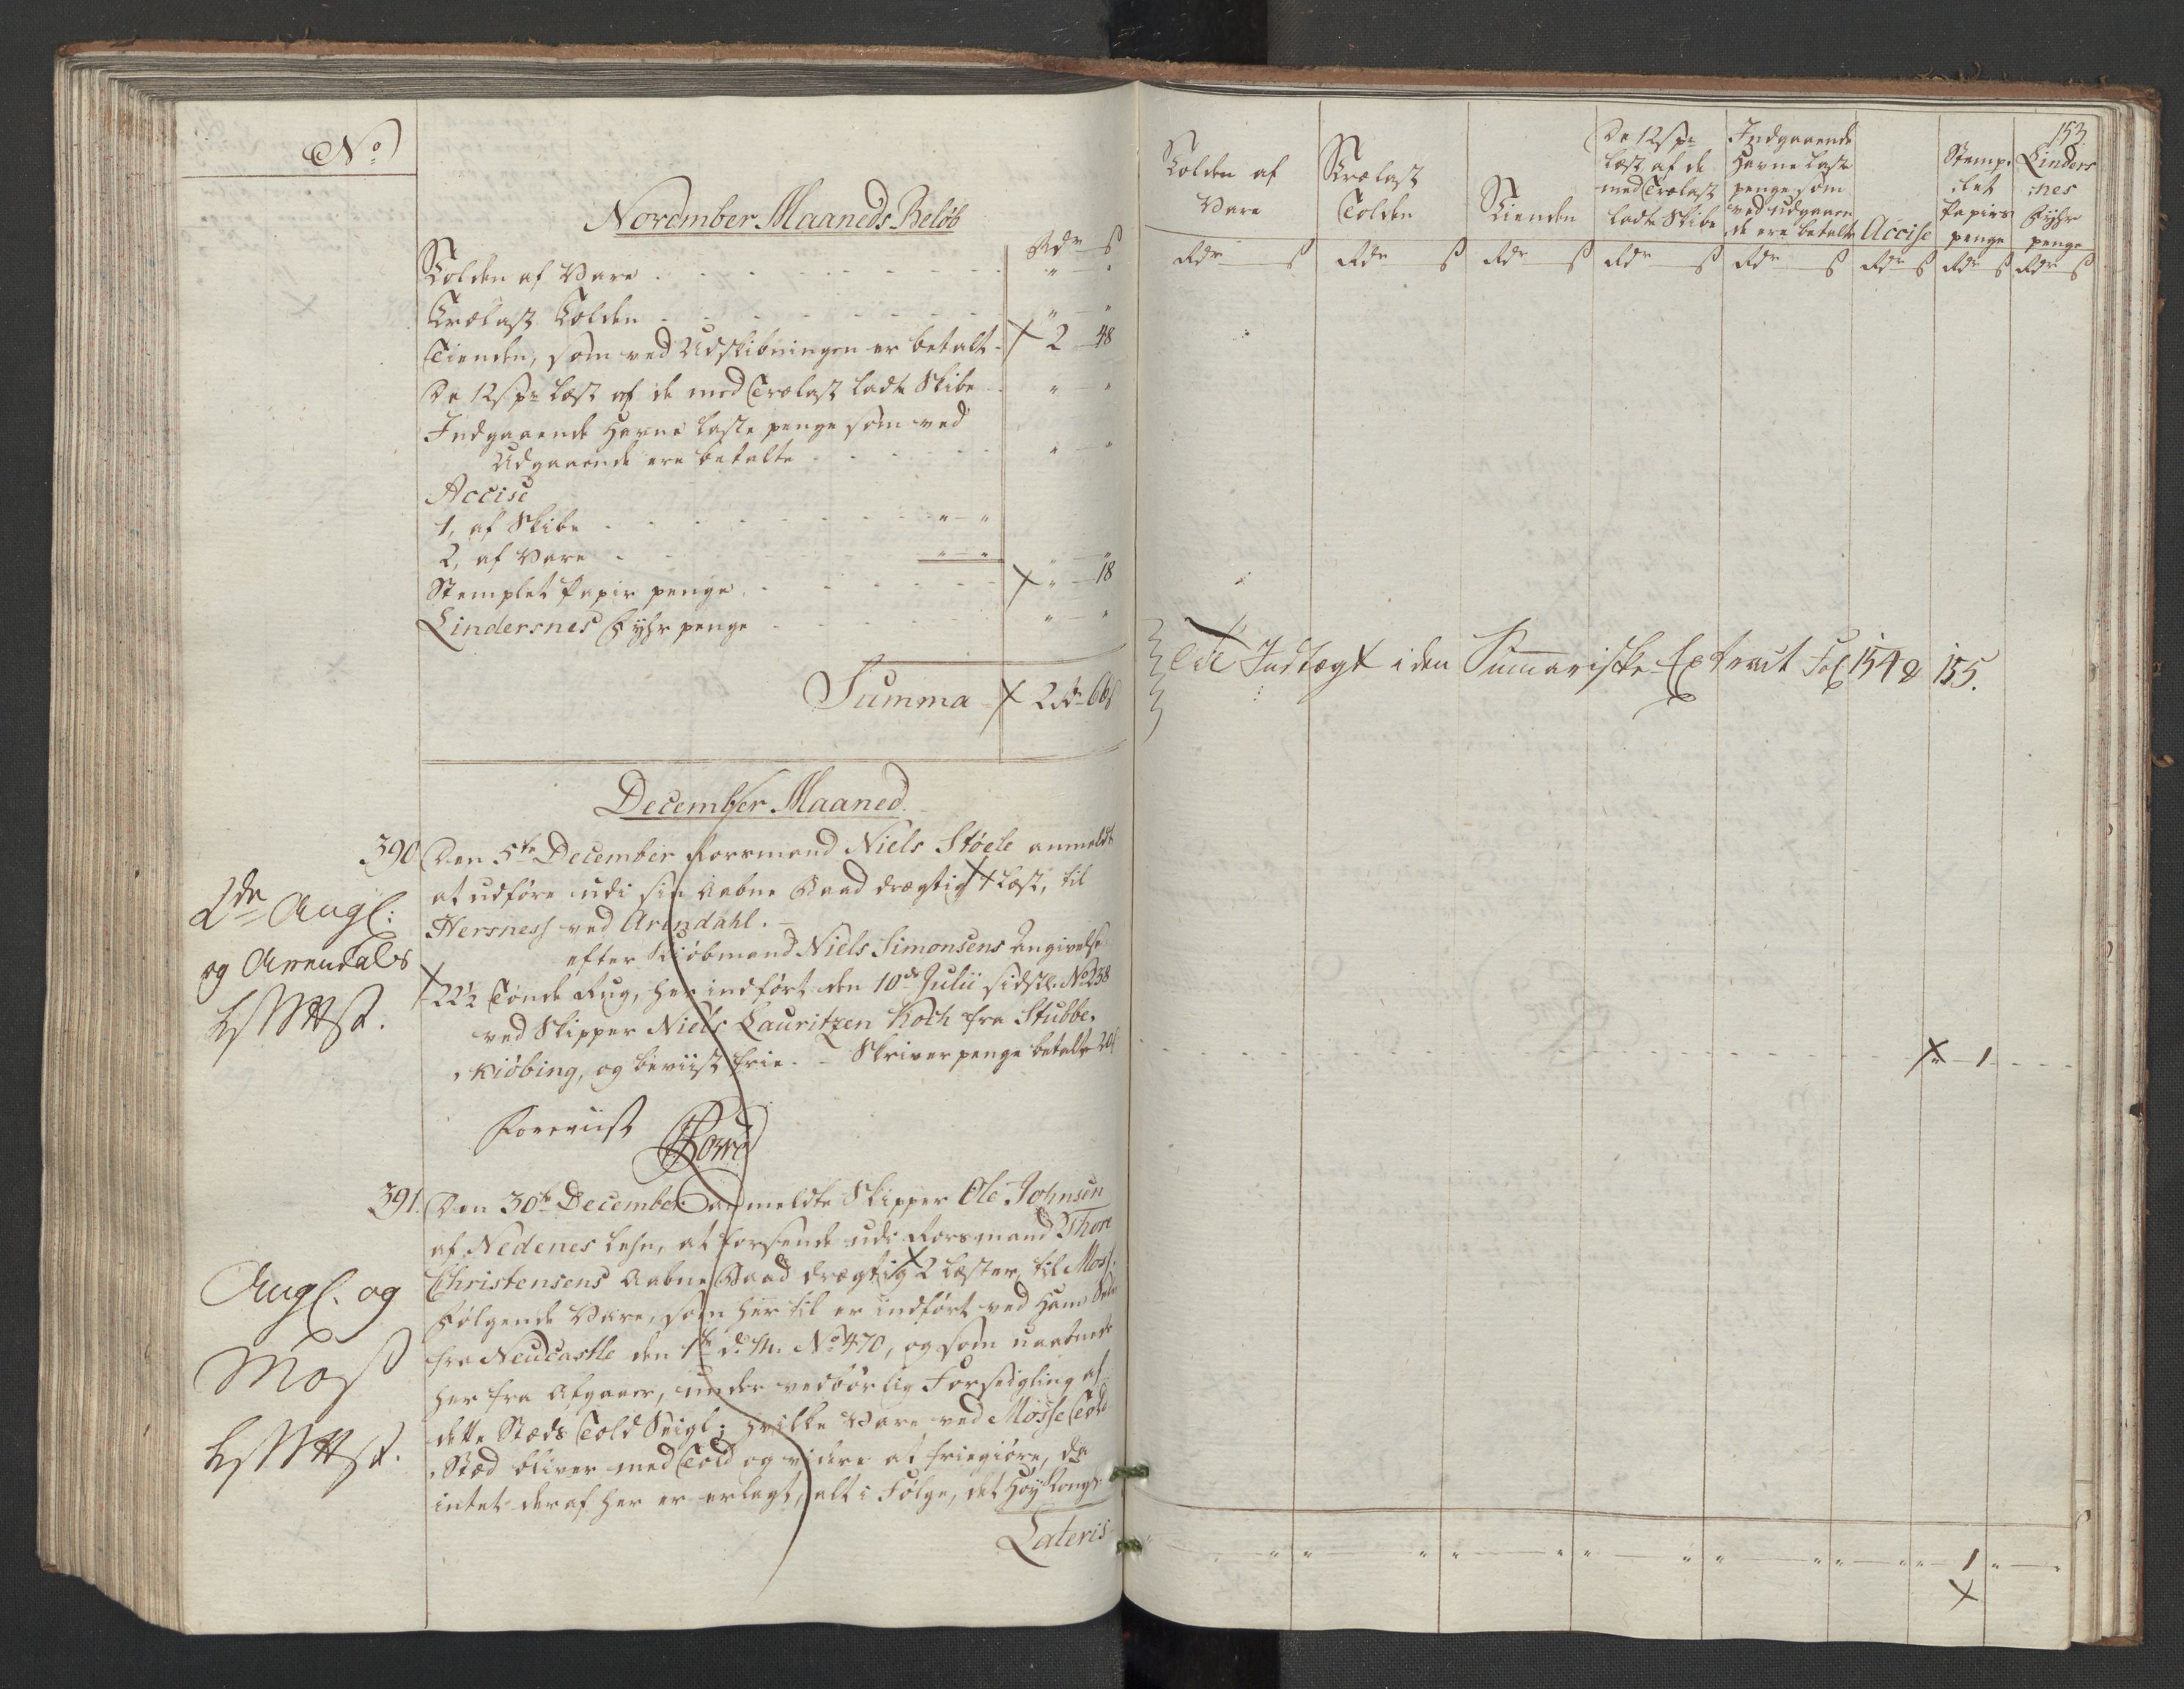 No
November Maaneds Beløb
Rdr ß
Tolden af Vare " "
Trælast Tolden " "
Tienden, som ved Udskibningen er betalt 2 48
De 12 ß pr Læst af de med Trælast ladte Skibe " "
Indgaaende Havne Laste penge som ved
Udgaaende ere betalte " "
Accise
1, af Skibe " "
2, af Vare " " " "
Stemplet Papir penge " 18
Lindersnes Fyhr penge " "
Summa 2 Rdr 66 ß
December Maaned
390. Den 5te December Forsmand Niels Støele anmeldt
at udføre udi sin Aabne Baad drægtig Læst, til
Hersness ved Arendahl.
efter Kiøbmand Niels Simonsens Angivelse
22½ Tønde Rug, her indført den 10de Julii sidstl. No 238
ved Skipper Niels Lauritzen Koch fra Stubbe-
kiøbing, og beviist frie. Skriver penge betalte 20 ß
2de Angl:
og Arendals
Foreviist
391. Den 30te December anmeldte Skipper Ole Johnsen
af Nedenes Lehn, at forsende udi Forsmand Thore
Christensens Aabne Baad drægtig 2 Læster, til Moss
Følgende Vare, som her til er indført ved Ham Selv
fra Neucastle den 1te d. M. No 470, og som uaabnede
her fra Afgaaer, under vedbørlig Forseigling af
dette Steds Told Seigl; hvilke Vare ved Mosse Told
Sted bliver med Told og videre at friegiøre, da
intet deraf her er erlagt, alt i Følge, det Høy Kongl.
Angl. og
Moss
Lateris
153.
Tolden af
Vare
Trælast
Tolden
Tienden
De 12 ß pr
Læst af de
med Trælast
ladte Skibe
Indgaaende
Havne Laste
penge som
ved udgaaen
de ere betalte
Accise
Stemp-
let
Papirs
penge
Linders
nes
Fyhr
penge
Rdr ß Rdr ß Rdr ß Rdr ß Rdr ß Rdr ß Rdr ß Rdr ß
Indtægt i den Summariske Extract Fol 154 & 155.
" 1
" " " " " " " " " " " " " 1 " "